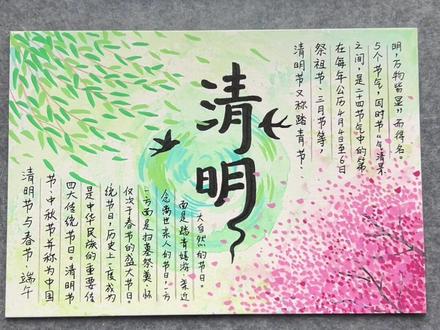 清明
清明节又称踏青节、
祭祖节、三月节等，
在每年公历4月4日至6日
之间，是二十四节气中的第
5个节气，因时节“气清景
明，万物皆显”而得名。
清明节与春节 端午
节、中秋节并称为中国
四大传统节日。清明节
是中华民族的重要传
统节日，历史上一度成为
仅次于春节的盛大节日。
一方面是扫墓祭奠、怀
念离世亲人的节日，一方
面是踏青嬉游 亲近
大自然的节日。